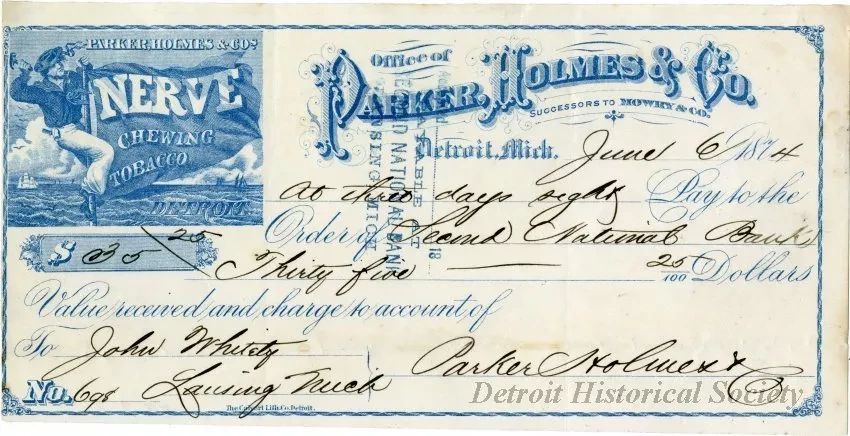 PARKER, HOLMES & CO'S
NERVE
CHEWING
TOBACCO
DETROIT.
Office of
PARKER, HOLMES & CO.
SUCCESSORS TO MOWRY & CO.
Detroit, Mich. June 6 1874
At three days sight Pay to the
$ 35 25
Order of Second National Bank
Thirty five — 25/100 Dollars
Value received and charge to account of
To John Whitsty
Parker Holmes & Co
No. 698 Lansing Mich
The Calvert Lith. Co. Detroit.
PAYABLE AT
NATIONAL BANK
LANSING MICH
Detroit Historical Society